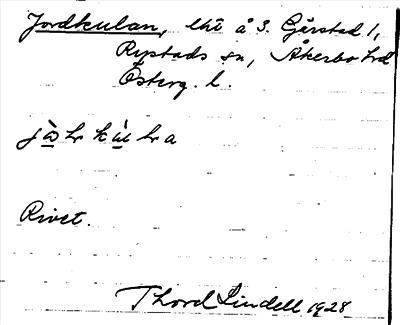 Jordkulan, lht å 3. Gärstad 1,
Rystads sn, Åkerbo hd
Österg. l.
Rivet.
Thord Lindell 1928